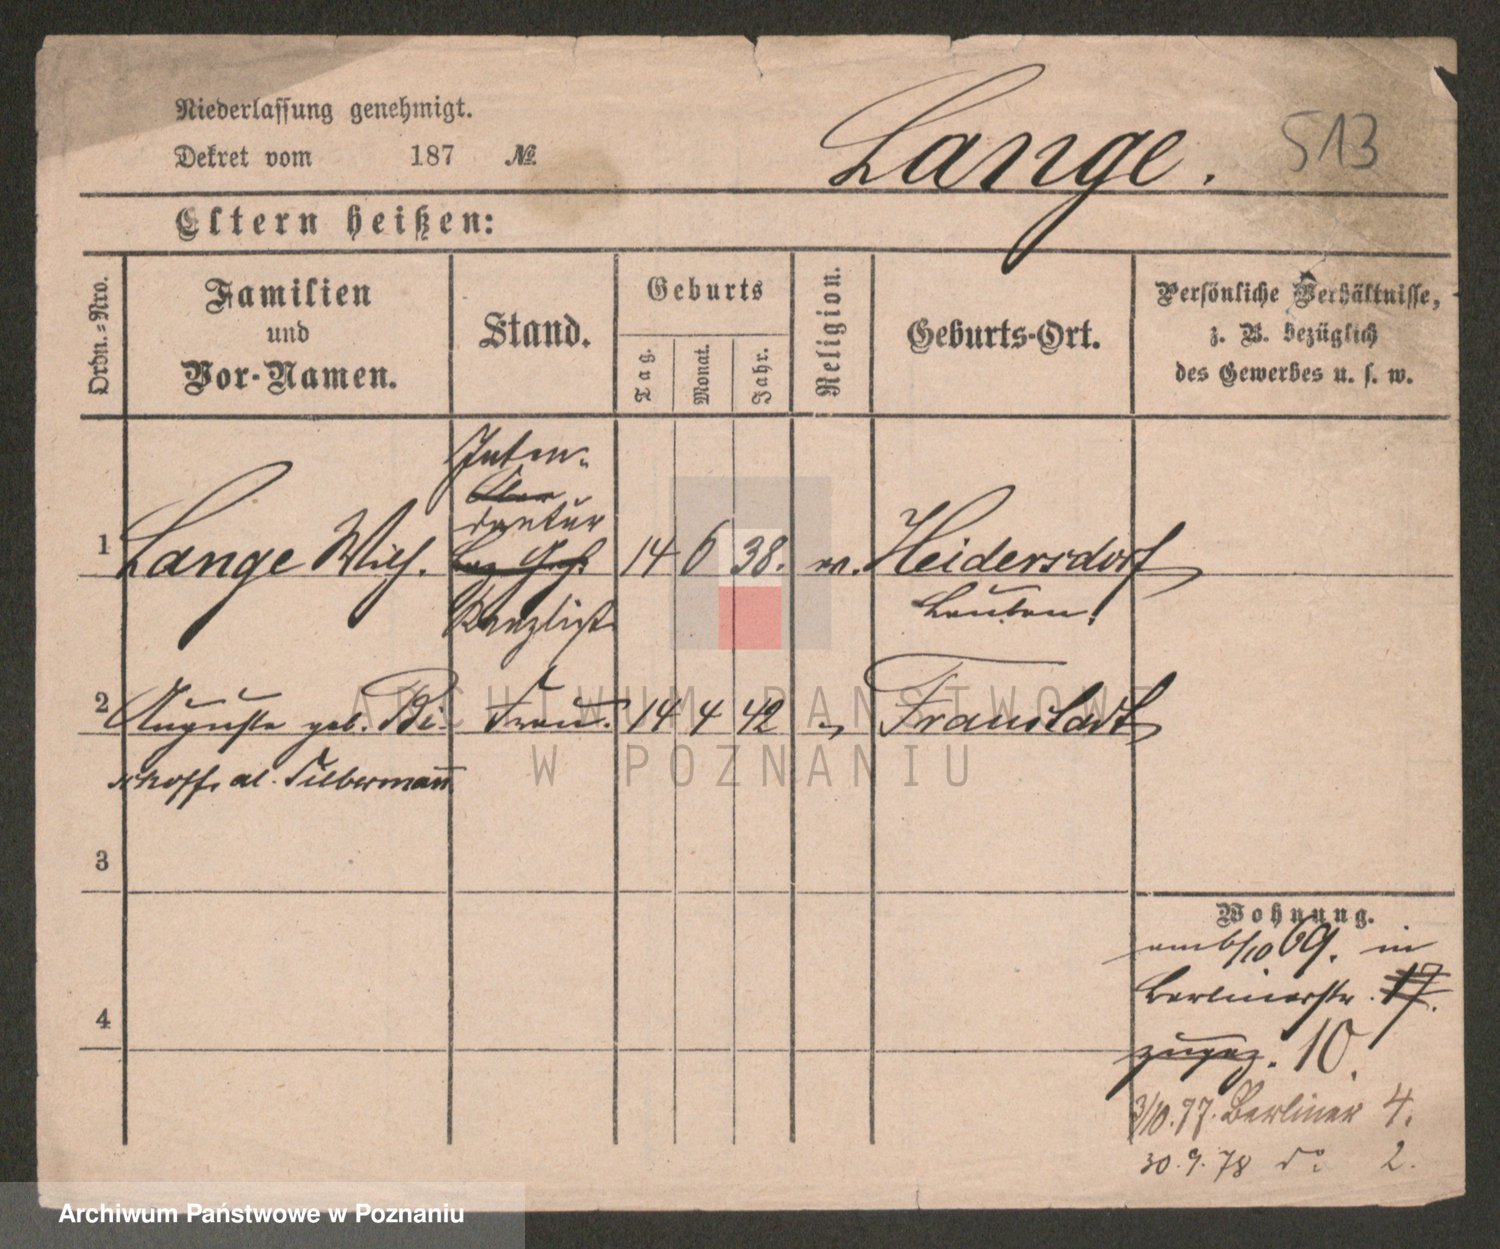 Niederlassung genehmigt.
Dekret vom 187 №
Lange. 513
Eltern heißen:
Ordn.-Nro.
Familien
und
Vor-Namen.
Stand.
Geburts
Tag.
Monat.
Jahr.
Religion.
Geburts-Ort.
Persönliche Verhältnisse,
z. B. bezüglich
des Gewerbes u. s. w.
Inten-
dantur
1 Lange Wilh. 14 6 38. Heidersdorf
Kanzlist
Lauban.
2 Auguste geb. Bi- Frau. 14 4 42 Fraustadt
schoff, al. Silbermann
3
4
Wohnung.
6/10 69. in
Berlinerstr. 17.
zugez. 10.
3/10.77. Berliner 4.
30.9.78 do 2.
ARCHIWUM PAŃSTWOWE
W POZNANIU
Archiwum Państwowe w Poznaniu